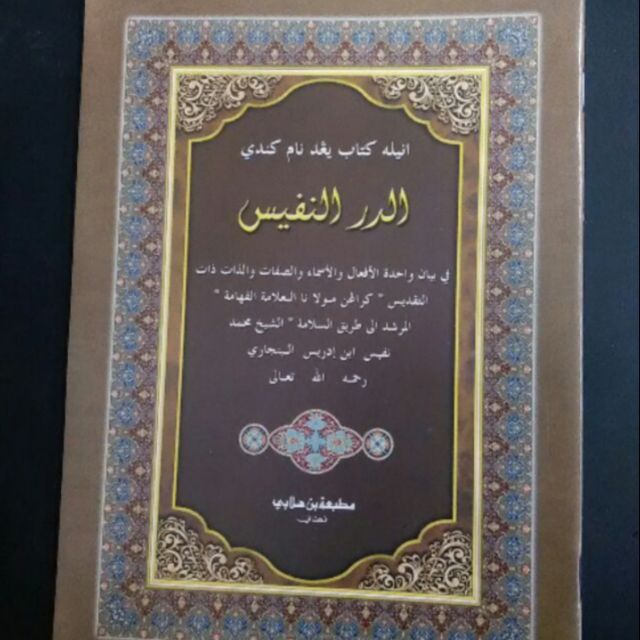 انيله كتاب يڠد نام كندي
الدر النفيس
في بيان واحدة الأفعال والأسماء والصفات والذات ذات
التقديس " كراڠن مولا نا العلامة الفهامة "
المرشد الى طريق السلامة " الشيخ محمد
نفيس ابن إدريس البنجاري
رحمه الله تعالى
مطبعة بن هلابي
فطاني